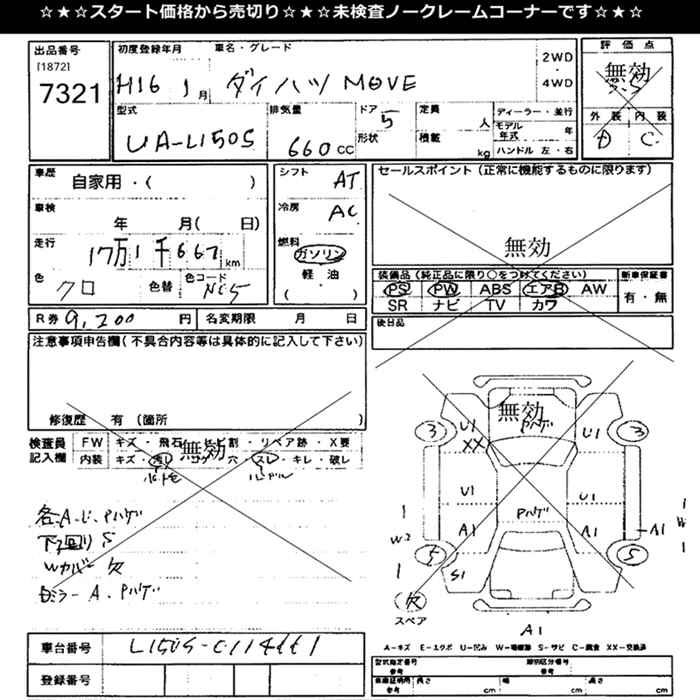 ☆★☆★スタート価格から売切り☆★☆★未検査ノークレームコーナーです☆★☆
出品番号 初度登録年月 車名・グレード 2WD・4WD 評価点
[1872] 7321 H16 1月 ダイハツ MOVE 無効
外装 内装
D C
型式 排気量 ドア 形状 定員 人 積載 kg ディーラー・並行 モデル年式 年 ハンドル 左・右
UA-L150S 660CC 5
車歴 自家用・( ) シフト AT セールスポイント (正常に機能するものに限ります)
車検 年 月( 日) 冷房 AC
走行 17万1千667km 燃料 ガソリン 軽油 ( ) 無効
色 クロ 色替 色コード NC5
装備品 (純正品に限り○をつけてください) 新車保証書
PS PW ABS エアB AW 有・無
SR ナビ TV カワ
R券 9,200円 名変期限 月 日 後日品
注意事項申告欄(不具合内容等は具体的に記入して下さい)
修復歴 有 (箇所 )
検査員記入欄 FW キズ・飛石・ヒビ割・リペア跡・X要
内装 キズ・汚レ・コゲ・穴・スレ・キレ・破レ
無効
ハンドル
各A.U.Pハゲ
下回りS
Wカバー欠
ミラーA.Pハゲ
無効
Pハゲ
3 U1 XX U1 3
U1 Pハゲ U1
W2 A1 A1 A1 W
5 S1 5
欠
スペア
A1
車台番号 L150S-
登録番号
A-キズ E-エクボ U-凹み W-補修跡 S-サビ C-腐食 XX-交換済
型式指定番号 参考 類別区分番号 参考
車庫証明用 参考 長さ cm 幅 cm 高さ cm